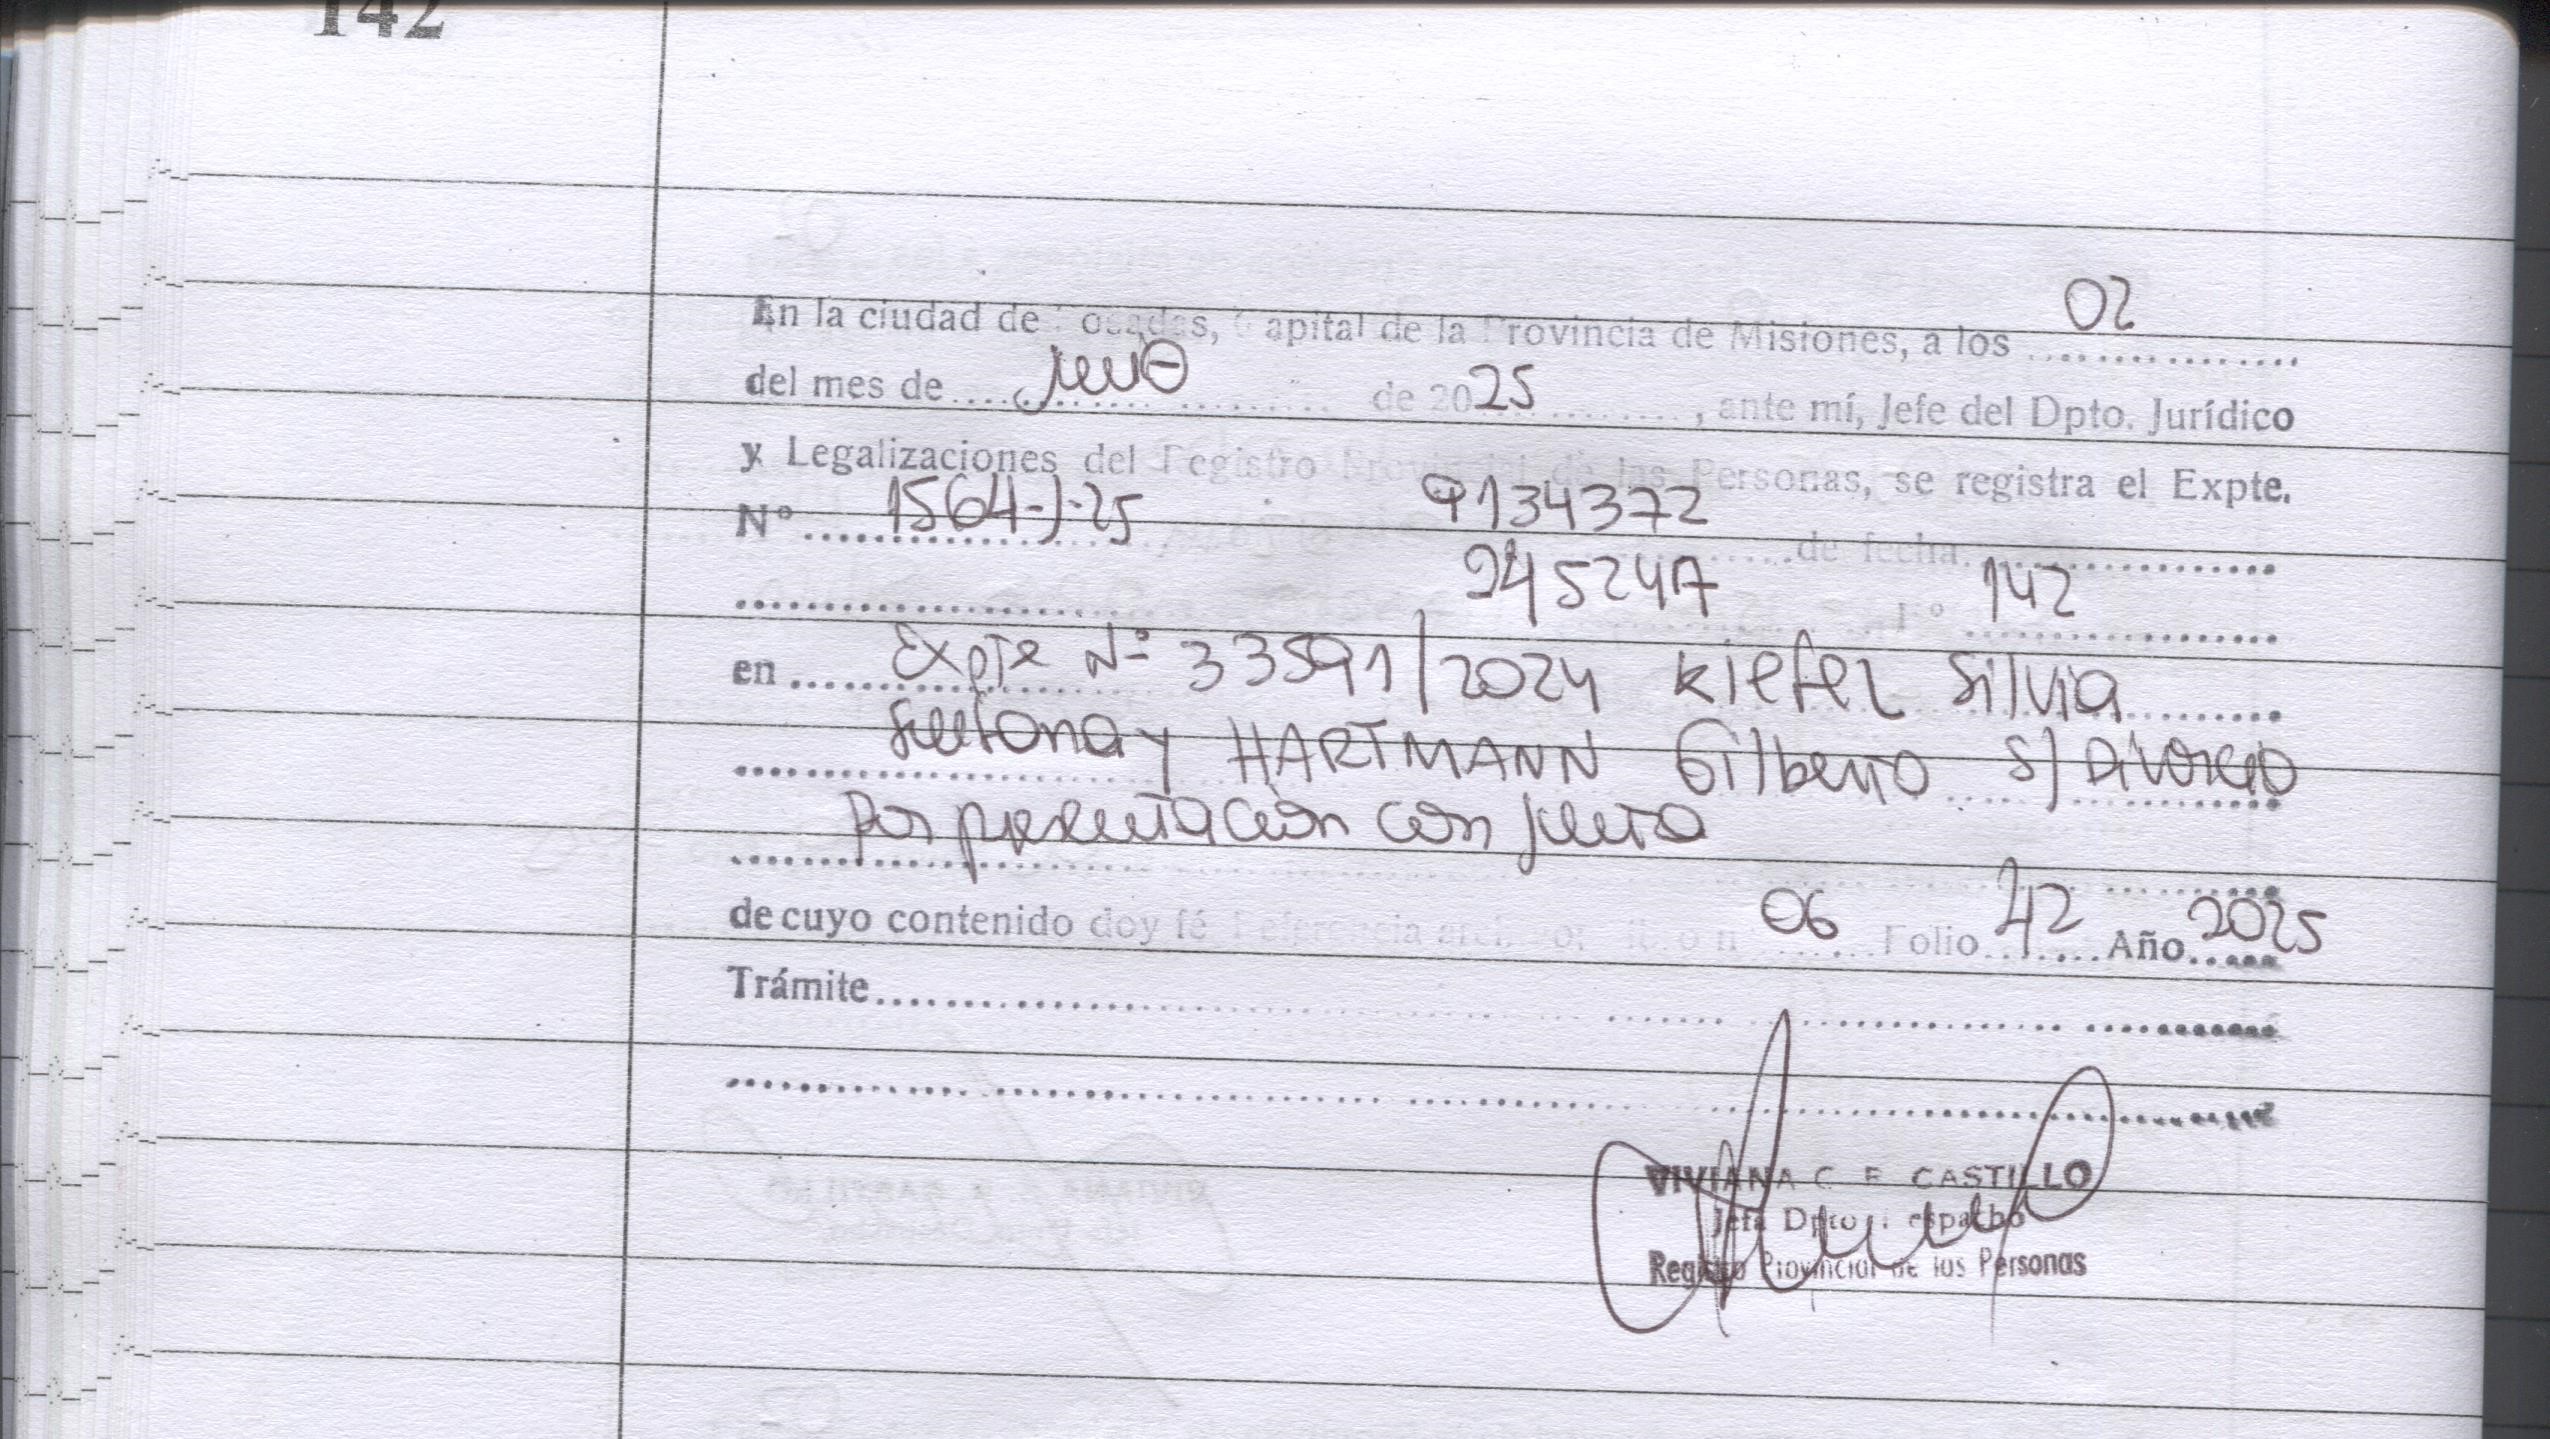 142
En la ciudad de Posadas, Capital de la Provincia de Misiones, a los 02
del mes de Junio de 2025, ante mí, Jefe del Dpto. Jurídico
y Legalizaciones del Registro Provincial de las Personas, se registra el Expte.
Nº 1564-J-25 9134372 de fecha
245247 Fº 142
en Expte Nº 33591/2024 Kiefer Silvia
y HARTMANN Gilberto S/ Divorcio
Por presentación conjunta
de cuyo contenido doy fé Referencia arch. 06 Folio 42 Año 2025
Trámite
VIVIANA C. E. CASTILLO
Jefa Dpto. Despacho
Registro Provincial de las Personas